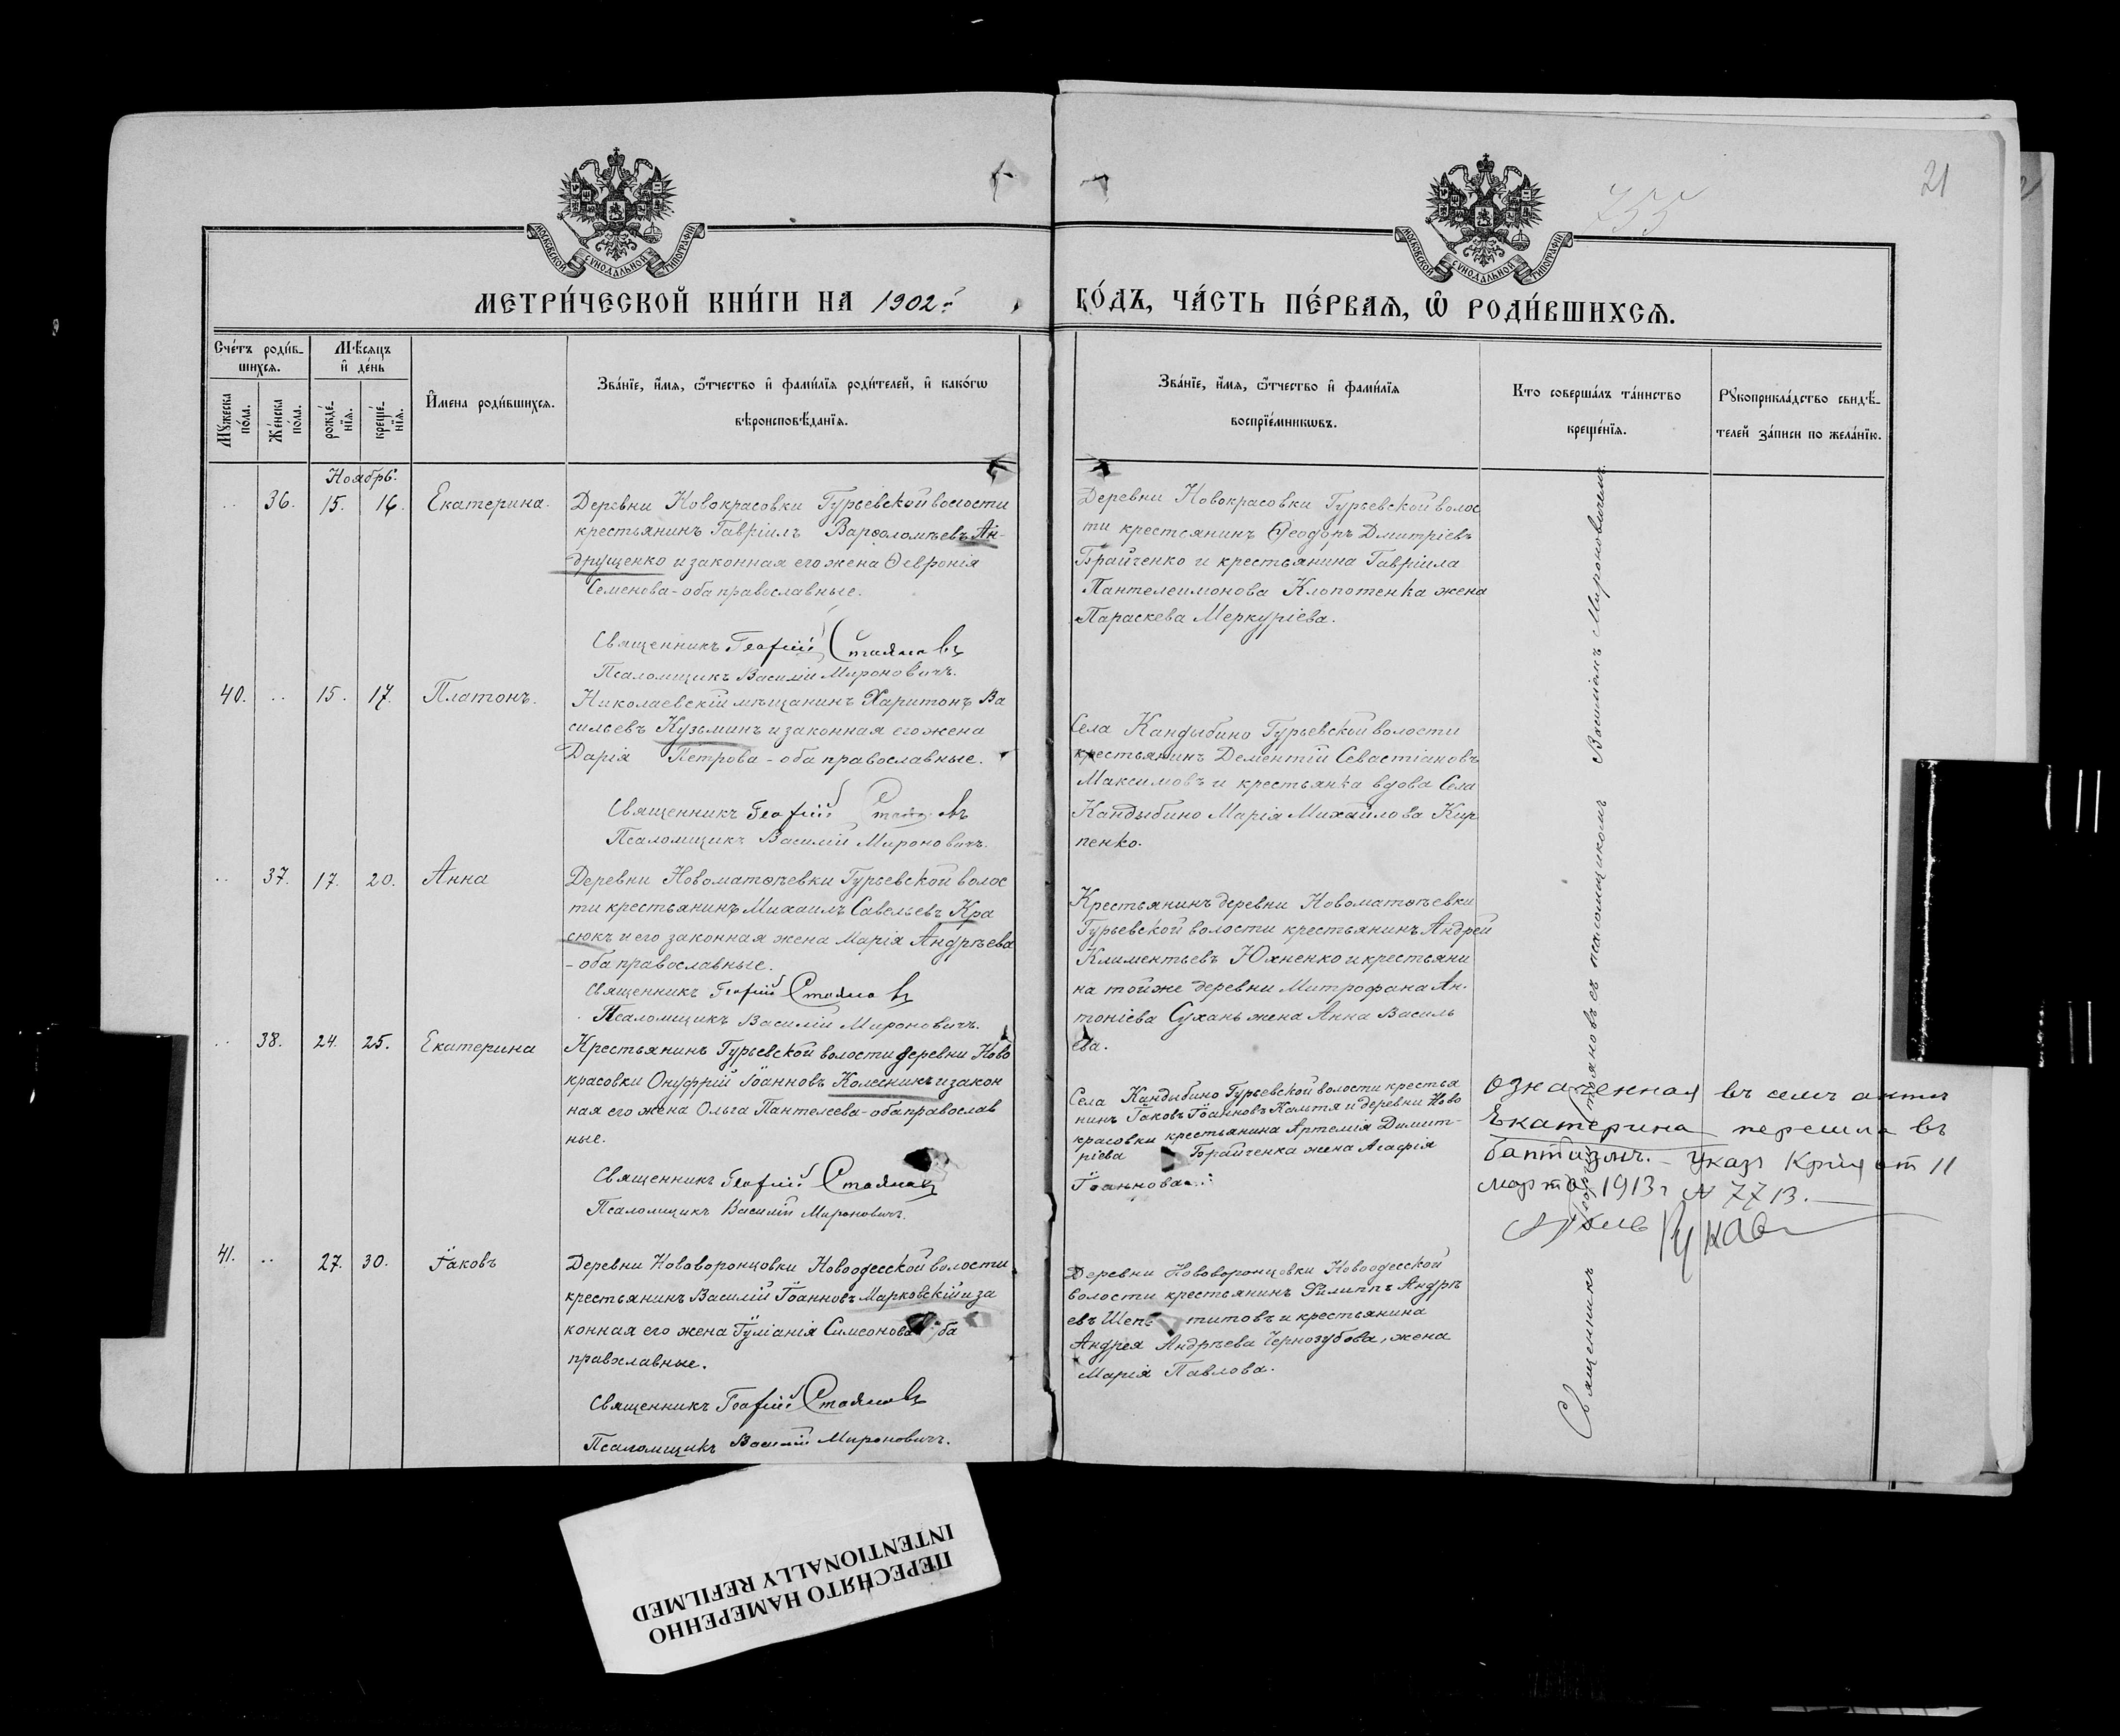 21
755
МОСКОВСКОЙ СУНОДАЛЬНОЙ ТИПОГРАФІИ
МОСКОВСКОЙ СУНОДАЛЬНОЙ ТИПОГРАФІИ
МЕТРИ́ЧЕСКОЙ КНИ́ГИ НА 1902 г.
ГО́ДЪ, ЧА́СТЬ ПЕ́РВАЯ, Ѿ РОДИ́ВШИХСЯ.
Сче́тъ роди́в-
шихсѧ.
Мѣ́сѧцъ
и҆ де́нь
Мꙋ́жеска по́ла.
Же́нска по́ла.
рожде́-нїѧ.
креще́-нїѧ.
И҆мена роди́вшихсѧ.
Зва́нїе, и҆́мѧ, ѻ҆́тчество и҆ фами́лїѧ роди́телей, и҆ како́гѡ
вѣроисповѣ́данїѧ.
Зва́нїе, и҆́мѧ, ѻ҆́тчество и҆ фами́лїѧ
воспрїе́мникѡвъ.
Кто соверша́лъ та́инство
креще́нїѧ.
Рꙋкоприкла́дство свидѣ́-
телей за́писи по жела́нїю.
Ноябрь.
.. 36. 15. 16. Екатерина.
Деревни Новокрасовки Гурьевской волости
крестьянинъ Гавріилъ Варѳоломѣевъ Ан-
друщенко и законная его жена Ѳевронія
Семенова - оба православные.
Священникъ Георгій Стояновъ
Псаломщикъ Василій Мироновичъ.
Деревни Новокрасовки Гурьевской волос
ти крестьянинъ Ѳеодоръ Дмитріевъ
Брайченко и крестьянина Гавріила
Пантелеимонова Клопотенка жена
Параскева Меркуріева.
40. .. 15. 17. Платонъ.
Николаевскій мѣщанинъ Харитонъ Ва
сильевъ Кузьминъ и законная его жена
Дарія Петрова - оба православные.
Священникъ Георгій Стояновъ
Псаломщикъ Василій Мироновичъ.
Села Кандыбино Гурьевской волости
крестьянинъ Дементій Севастіановъ
Максимовъ и крестьянка вдова Села
Кандыбино Марія Михайлова Кир
пенко.
.. 37. 17. 20. Анна
Деревни Новоматвѣевки Гурьевской волос
ти крестьянинъ Михаилъ Савельевъ Кра
сюкъ и его законная жена Марія Андрѣева
- оба православные.
Священникъ Георгій Стояновъ
Псаломщикъ Василій Мироновичъ.
Крестьянинъ деревни Новоматвѣевки
Гурьевской волости крестьянинъ Андрей
Климентьевъ Юхненко и крестьяни
на той же деревни Митрофана Ан-
тоніева Сухань жена Анна Василь
ева.
.. 38. 24. 25. Екатерина
Крестьянинъ Гурьевской волости деревни Ново
красовки Онуфрій Іоанновъ Колесникъ и закон
ная его жена Ольга Пантелеева - оба православ
ные.
Священникъ Георгій Стояновъ
Псаломщикъ Василій Мироновичъ.
Села Кандыбино Гурьевской волости крестья
нинъ Іаковъ Іоанновъ и деревни Ново
красовки крестьянина Артемія Димит-
ріева Брайченка жена Агафія
Іоаннова.
означенная въ семъ актѣ
Екатерина перешла въ
баптизмъ. - Указъ от 11
марта 1913 г N 7713. —
41. .. 27. 30. Іаковъ
Деревни Нововоронцовки Новоодесской волости
крестьянинъ Василій Іоанновъ Марковскій и за
конная его жена Іуліанія Симеонова оба
православные.
Священникъ Георгій Стояновъ
Псаломщикъ Василій Мироновичъ.
Деревни Нововоронцовки Новоодесской
волости крестьянинъ Филиппъ Андрѣ
евъ и крестьянина
Андрея Андрѣева Чернозубова, жена
Марія Павлова.
Священникъ Георгій Стояновъ съ псаломщикомъ Василіемъ Мироновичемъ.
ПЕРЕСНЯТО НАМЕРЕННО
INTENTIONALLY REFILMED